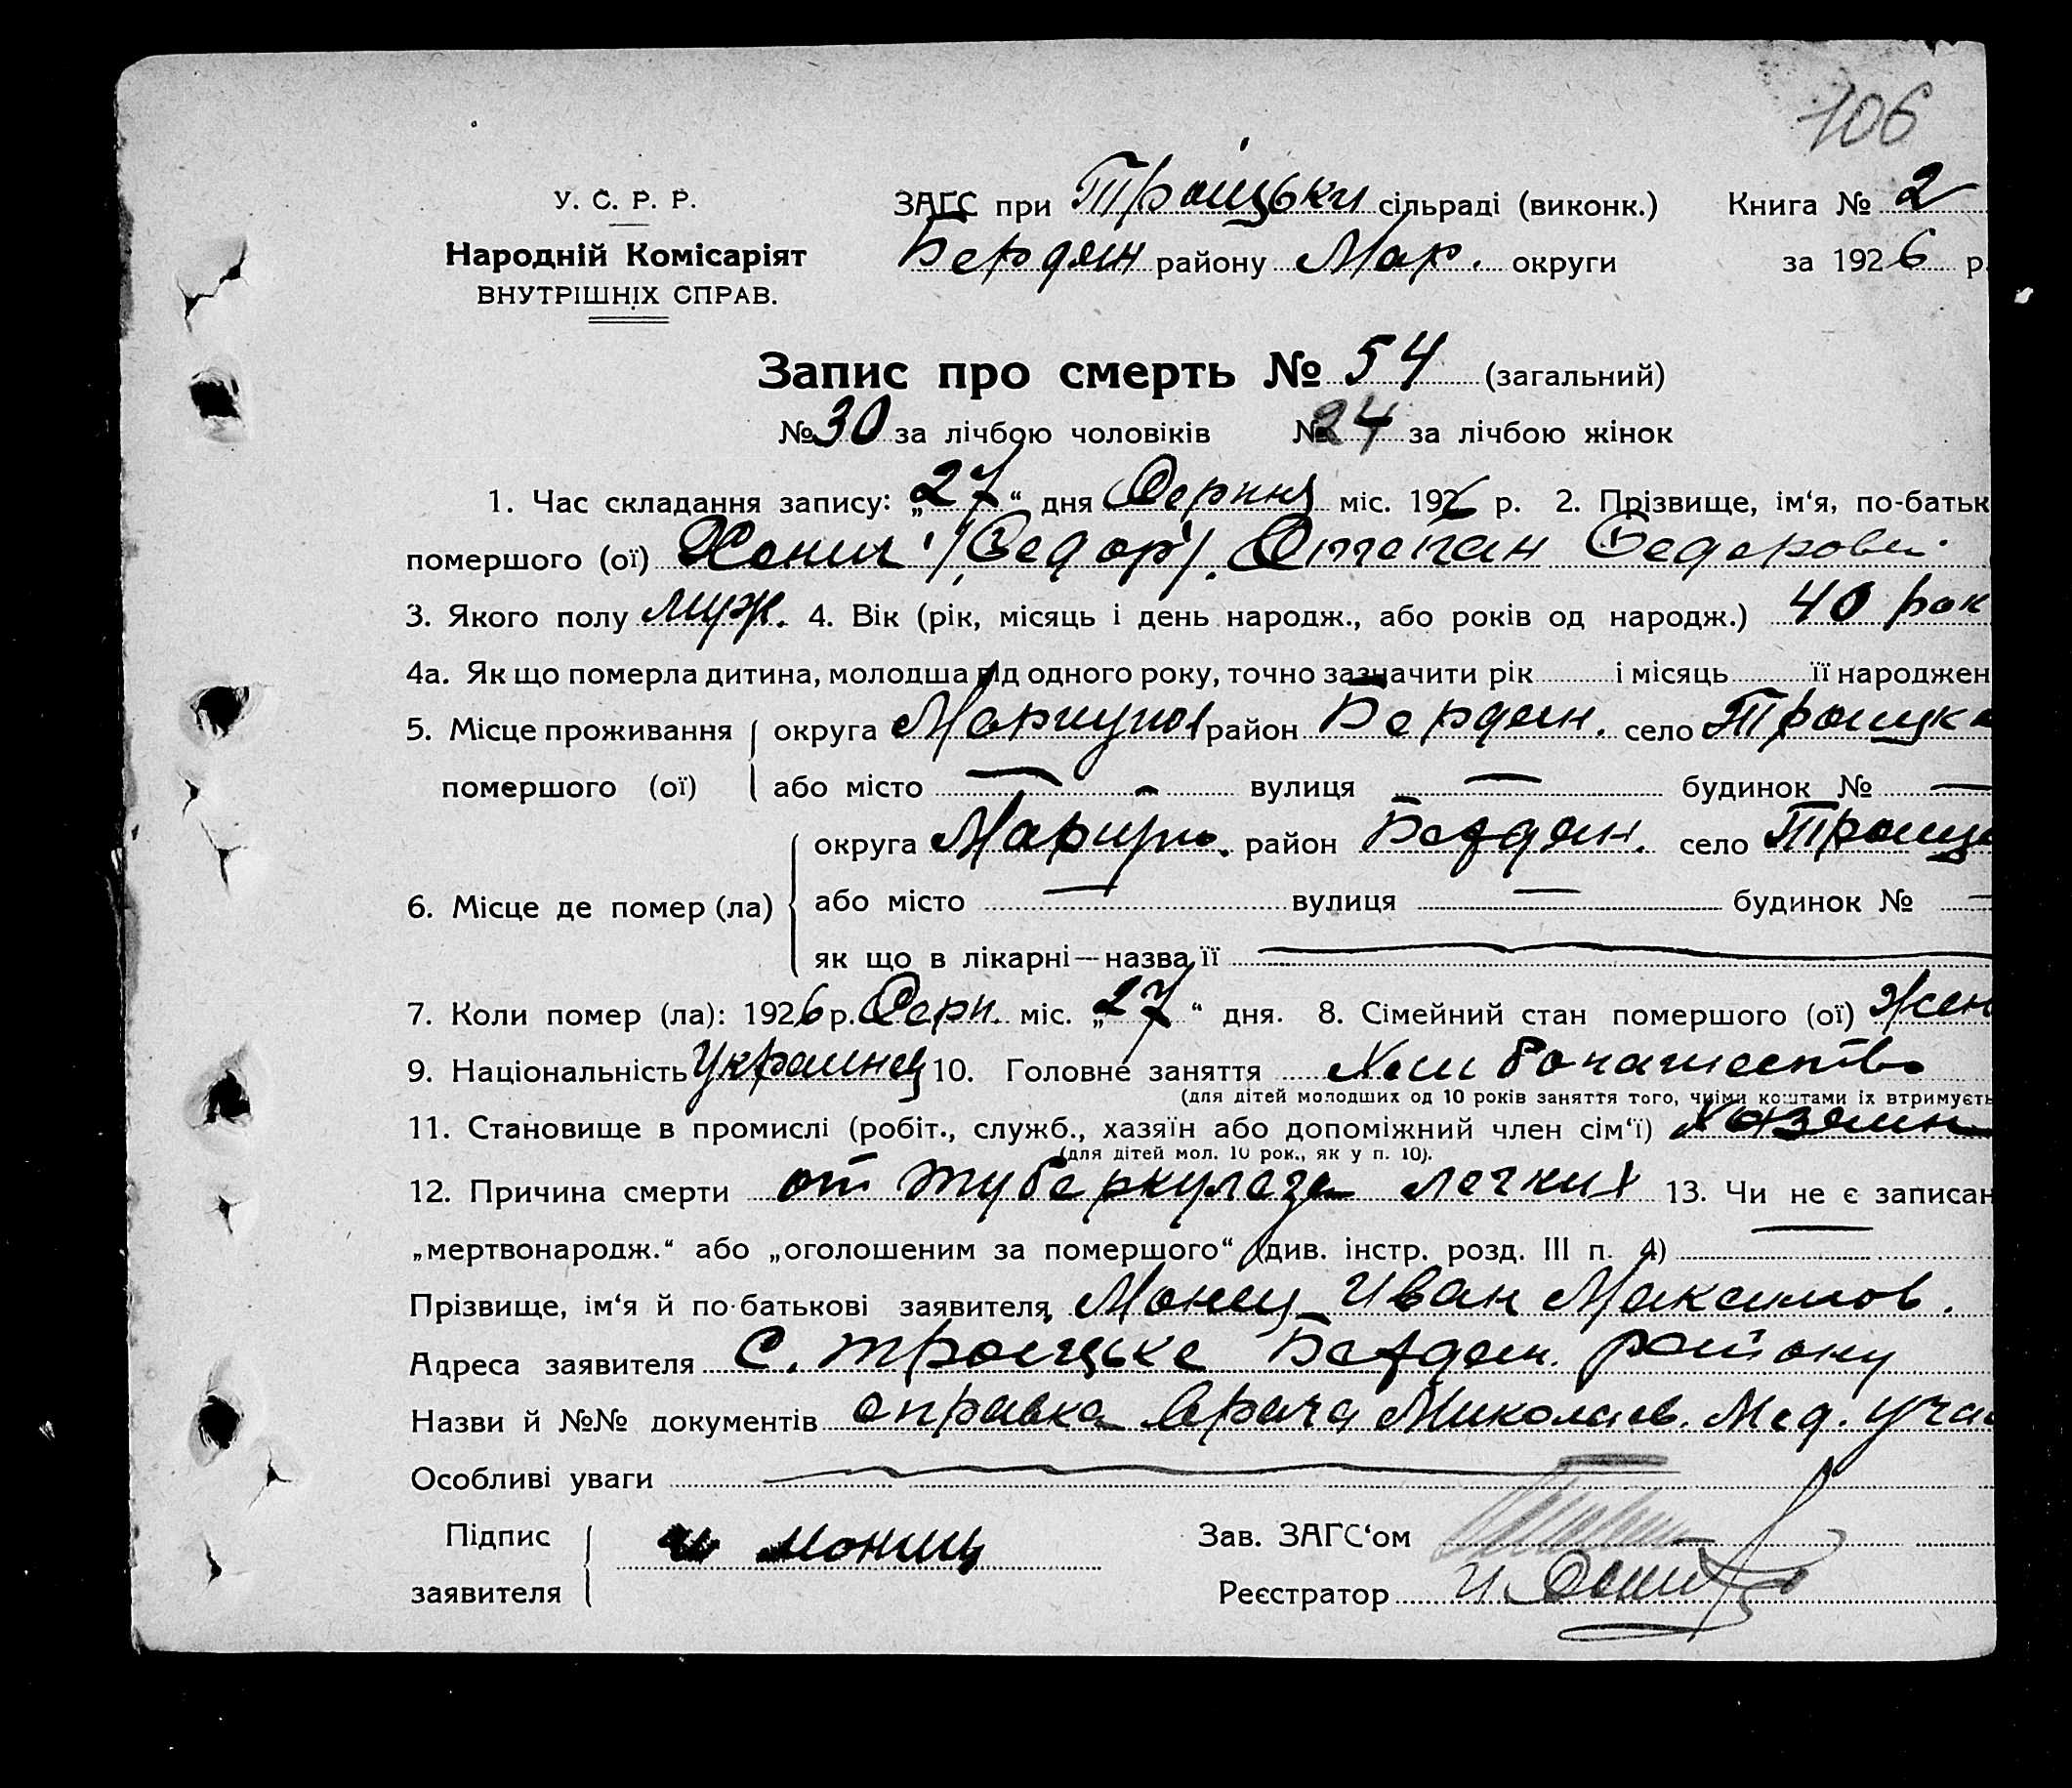 106
У. С. Р. Р.
Народній Комісаріят
ВНУТРІШНІХ СПРАВ.
ЗАГС при Троіцьки сільраді (виконк.) Книга № 2
Бердян району Мар. округи за 1926 р.
Запис про смерть № 54 (загальний)
№ 30 за лічбою чоловіків № 24 за лічбою жінок
1. Час складання запису: „27“ дня Серпня міс. 1926 р. 2. Прізвище, ім‘я, по-батьк
помершого (ої) (Федор) Степан Федорови
3. Якого полу муж. 4. Вік (рік, місяць і день народж., або років од народж.) 40 рок
4а. Як що померла дитина, молодша від одного року, точно зазначити рік і місяць її народжен
5. Місце проживання округа Мариупол район Бердян. село Троицк
помершого (ої) або місто — вулиця — будинок № —
округа Мариуп. район Бердян. село Троиц
6. Місце де помер (ла) або місто — вулиця — будинок № —
як що в лікарні—назва її —
7. Коли помер (ла): 1926 р. Серп. міс. „27“ дня. 8. Сімейний стан помершого (ої) Жен
9. Національність Украинец 10. Головне заняття
(для дітей молодших од 10 років заняття того, чиїми коштами їх втримуєть
11. Становище в промислі (робіт., служб., хазяїн або допоміжний член сім‘ї) Хозяин
(для дітей мол. 10 рок., як у п. 10).
12. Причина смерти от туберкулеза легких 13. Чи не є записан
„мертвонародж.“ або „оголошеним за помершого“ (див. інстр. розд. III п. 4) —
Прізвище, ім‘я й по-батькові заявителя Монец Иван Максимов.
Адреса заявителя С. Троіцьке Бердян. району
Назви й №№ документів справка врача Миколаев. Мед. учас
Особливі уваги —
Підпис
заявителя и монец
Зав. ЗАГС‘ом
Реєстратор